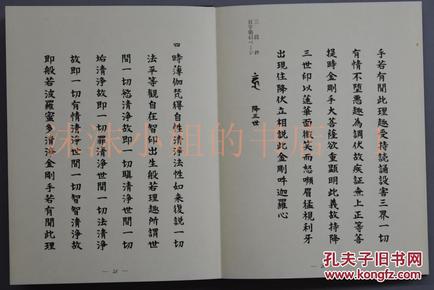 手若有聞此理趣受持讀誦設害三界一切
有情不墮惡趣為調伏故疾證無上正等菩
提時金剛手大菩薩欲重顯明此義故持降
三世印以蓮華面微笑而怒顰眉猛視利牙
出現住降伏立相說此金剛吽迦羅心
降三世
三段鈔
四 時薄伽梵得自性清淨法性如來復說一切
法平等觀自在智印出生般若理趣所謂世
間一切慾清淨故即一切瞋清淨世間一切
垢清淨故即一切罪清淨世間一切法清淨
故即一切有情清淨世間一切智智清淨故
即般若波羅蜜多清淨金剛手若有聞此理
妹妹小姐的书店
孔夫子旧书网